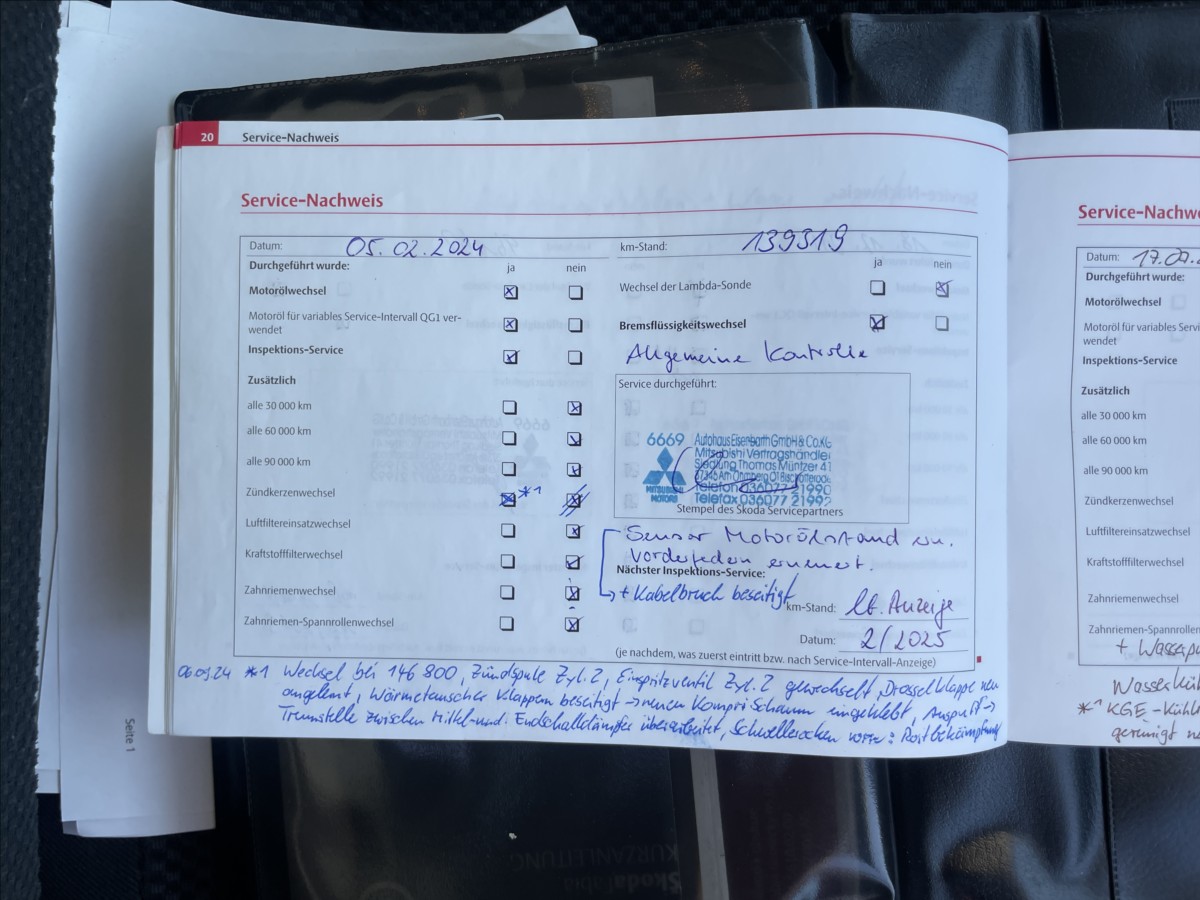 20 Service-Nachweis
Service-Nachweis
Datum: 05.02.2024 km-Stand: 139319
Durchgeführt wurde: ja nein ja nein
Motorölwechsel Wechsel der Lambda-Sonde
Motoröl für variables Service-Intervall QG1 ver-
wendet Bremsflüssigkeitswechsel
Inspektions-Service Allgemeine Kontrolle
Zusätzlich Service durchgeführt:
alle 30 000 km
alle 60 000 km
alle 90 000 km
Zündkerzenwechsel *1
Luftfiltereinsatzwechsel
Kraftstofffilterwechsel
Zahnriemenwechsel
Zahnriemen-Spannrollenwechsel
6669 Autohaus Eisenbarth GmbH & Co.KG
Mitsubishi Vertragshändler
Siedlung Thomas Müntzer 41
37345 Am Ohmberg OT Bischofferode
MITSUBISHI Telefon 036077 21990
MOTORS Telefax 036077 21992
Stempel des Skoda Servicepartners
Sensor Motorölstand ern.
Vorderfedern erneuert.
Nächster Inspektions-Service:
+ Kabelbruch beseitigt
km-Stand: lt. Anzeige
Datum: 2/2025
(je nachdem, was zuerst eintritt bzw. nach Service-Intervall-Anzeige)
06.09.24 *1 Wechsel bei 146 800, Zündspule Zyl. 2, Einspritzventil Zyl. 2 gewechselt, Drosselklappe neu
angelernt, Wärmetauscher Klappern beseitigt → neuen Kompri Schaum eingeklebt, Auspuff →
Trennstelle zwischen Mittel- und Endschalldämpfer überarbeitet, : Rostbekämpfung
Service-Nachw
Datum: 17.0
Durchgeführt wurde:
Motorölwechsel
Motoröl für variables Servic
wendet
Inspektions-Service
Zusätzlich
alle 30 000 km
alle 60 000 km
alle 90 000 km
Zündkerzenwechsel
Luftfiltereinsatzwechsel
Kraftstofffilterwechsel
Zahnriemenwechsel
Zahnriemen-Spannrollen
+ Wasserpu
Wasserküh
*1 KGE-Kühl
gereinigt
Seite 1